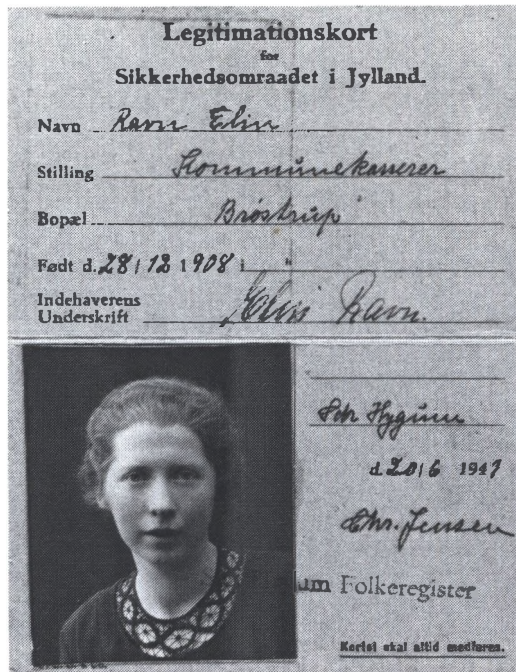 Legitimationskort
for
Sikkerhedsomraadet i Jylland.
Navn Ravn Elin
Stilling Kommunekasserer
Bopæl Brøstrup
Født d. 28/12 1908 i "
Indehaverens
Underskrift Elin Ravn.
Hygum
d. 20/6 1941
Chr. Jensen
um Folkeregister
Kortet skal altid medføres.